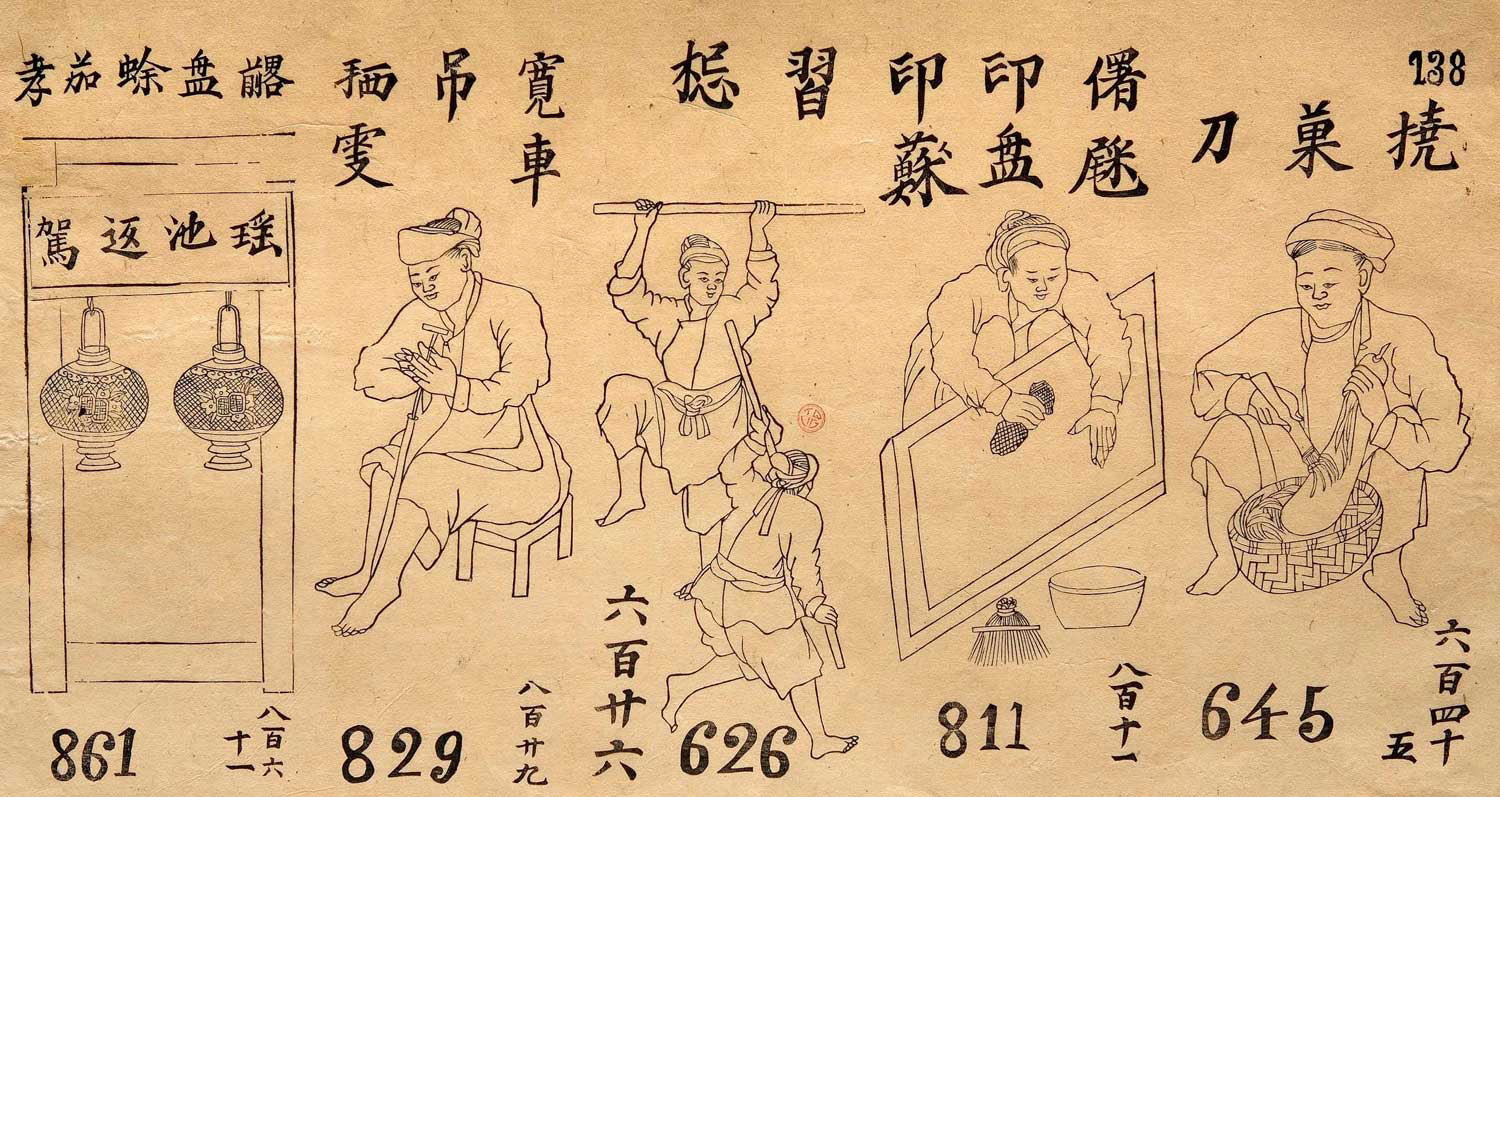 138
撓菓刀
六百四十
五
645
印印
盘
八百十一
811
習
六百廿六
626
寬車
吊
雯
八百廿九
829
盘蜍茄孝
瑶池返駕
八百六
十一
861